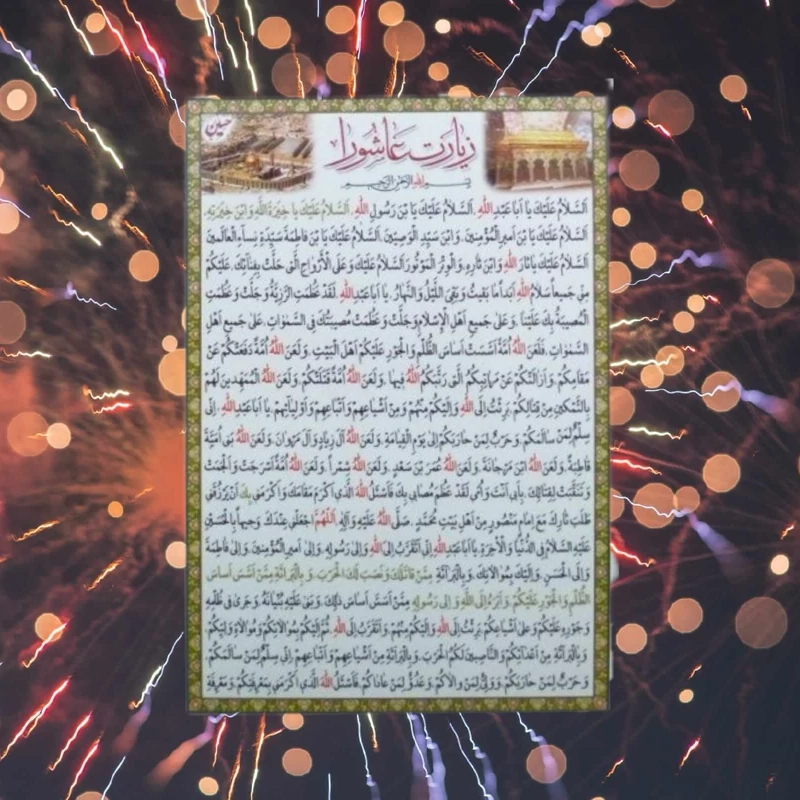 حسین
زیارت عاشورا
بسم الله الرحمن الرحیم
اَلسَّلامُ عَلَیْکَ یا اَباعَبْدِاللهِ، اَلسَّلامُ عَلَیْکَ یَا بْنَ رَسُولِ اللهِ، اَلسَّلامُ عَلَیْکَ یا خِیَرَةَ اللهِ وَ ابْنَ خِیَرَتِهِ،
اَلسَّلامُ عَلَیْکَ یَا بْنَ اَمیرِالْمُؤْمِنینَ، وَ ابْنَ سَیِّدِ الْوَصِیّینَ، اَلسَّلامُ عَلَیْکَ یَا بْنَ فاطِمَةَ سَیِّدَةِ نِساءِ الْعالَمینَ
اَلسَّلامُ عَلَیْکَ یا ثارَ اللهِ وَ ابْنَ ثارِهِ، وَ الْوِتْرَ الْمَوْتُورَ، اَلسَّلامُ عَلَیْکَ وَ عَلَی الْاَرْواحِ الَّتی حَلَّتْ بِفِنائِکَ، عَلَیْکُمْ
مِنّی جَمیعاً سَلامُ اللهِ اَبَداً ما بَقیتُ وَ بَقِیَ اللَّیْلُ وَ النَّهارُ، یا اَباعَبْدِاللهِ، لَقَدْ عَظُمَتِ الرَّزِیَّةُ وَ جَلَّتْ وَ عَظُمَتِ
الْمُصیبَةُ بِکَ عَلَیْنا، وَ عَلی جَمیعِ اَهْلِ الْاِسْلامِ وَ جَلَّتْ وَ عَظُمَتْ مُصیبَتُکَ فِی السَّمٰوٰاتِ، عَلی جَمیعِ اَهْلِ
السَّمٰوٰاتِ، فَلَعَنَ اللهُ اُمَّةً اَسَّسَتْ اَساسَ الظُّلْمِ وَ الْجَوْرِ عَلَیْکُمْ اَهْلَ الْبَیْتِ، وَ لَعَنَ اللهُ اُمَّةً دَفَعَتْکُمْ عَنْ
مَقامِکُمْ، وَ اَزالَتْکُمْ عَنْ مَراتِبِکُمُ الَّتی رَتَّبَکُمُ اللهُ فیها، وَ لَعَنَ اللهُ اُمَّةً قَتَلَتْکُمْ، وَ لَعَنَ اللهُ الْمُمَهِّدینَ لَهُمْ
بِالتَّمْکینِ مِنْ قِتالِکُمْ، بَرِئْتُ اِلَی اللهِ وَ اِلَیْکُمْ مِنْهُمْ وَ مِنْ اَشْیاعِهِمْ وَ اَتْباعِهِمْ وَ اَوْلِیائِهِمْ، یا اَباعَبْدِاللهِ، اِنّی
سِلْمٌ لِمَنْ سالَمَکُمْ، وَ حَرْبٌ لِمَنْ حارَبَکُمْ اِلی یَوْمِ الْقِیامَةِ، وَ لَعَنَ اللهُ آلَ زِیادٍ وَ آلَ مَرْوانَ، وَ لَعَنَ اللهُ بَنی اُمَیَّةَ
قاطِبَةً، وَ لَعَنَ اللهُ ابْنَ مَرْجانَةَ، وَ لَعَنَ اللهُ عُمَرَ بْنَ سَعْدٍ، وَ لَعَنَ اللهُ شِمْراً، وَ لَعَنَ اللهُ اُمَّةً اَسْرَجَتْ وَ اَلْجَمَتْ
وَ تَنَقَّبَتْ لِقِتالِکَ، بِاَبی اَنْتَ وَ اُمّی لَقَدْ عَظُمَ مُصابی بِکَ فَاَسْئَلُ اللهَ الَّذی اَکْرَمَ مَقامَکَ وَ اَکْرَمَنی بِکَ اَنْ یَرْزُقَنی
طَلَبَ ثارِکَ مَعَ اِمامٍ مَنْصُورٍ مِنْ اَهْلِ بَیْتِ مُحَمَّدٍ، صَلَّی اللهُ عَلَیْهِ وَ آلِهِ، اَللّٰهُمَّ اجْعَلْنی عِنْدَکَ وَجیهاً بِالْحُسَیْنِ
عَلَیْهِ السَّلامُ فِی الدُّنْیا وَ الْاٰخِرَةِ، یا اَباعَبْدِاللهِ اِنّی اَتَقَرَّبُ اِلَی اللهِ وَ اِلی رَسُولِهِ، وَ اِلی اَمیرِالْمُؤْمِنینَ، وَ اِلی فاطِمَةَ
وَ اِلَی الْحَسَنِ، وَ اِلَیْکَ بِمُوالاتِکَ، وَ بِالْبَرائَةِ مِمَّنْ قاتَلَکَ وَ نَصَبَ لَکَ الْحَرْبَ، وَ بِالْبَرائَةِ مِمَّنْ اَسَّسَ اَساسَ
الظُّلْمِ وَ الْجَوْرِ عَلَیْکُمْ، وَ اَبْرَءُ اِلَی اللهِ وَ اِلی رَسُولِهِ مِمَّنْ اَسَّسَ اَساسَ ذلِکَ، وَ بَنی عَلَیْهِ بُنْیانَهُ، وَ جَری فی ظُلْمِهِ
وَ جَوْرِهِ عَلَیْکُمْ وَ عَلی اَشْیاعِکُمْ، بَرِئْتُ اِلَی اللهِ وَ اِلَیْکُمْ مِنْهُمْ، وَ اَتَقَرَّبُ اِلَی اللهِ، ثُمَّ اِلَیْکُمْ بِمُوالاتِکُمْ وَ مُوالاةِ وَلِیِّکُمْ،
وَ بِالْبَرائَةِ مِنْ اَعْدائِکُمْ وَ النّاصِبینَ لَکُمُ الْحَرْبَ، وَ بِالْبَرائَةِ مِنْ اَشْیاعِهِمْ وَ اَتْباعِهِمْ، اِنّی سِلْمٌ لِمَنْ سالَمَکُمْ،
وَ حَرْبٌ لِمَنْ حارَبَکُمْ، وَ وَلِیٌّ لِمَنْ والاکُمْ، وَ عَدُوٌّ لِمَنْ عاداکُمْ، فَاَسْئَلُ اللهَ الَّذی اَکْرَمَنی بِمَعْرِفَتِکُمْ، وَ مَعْرِفَةِ